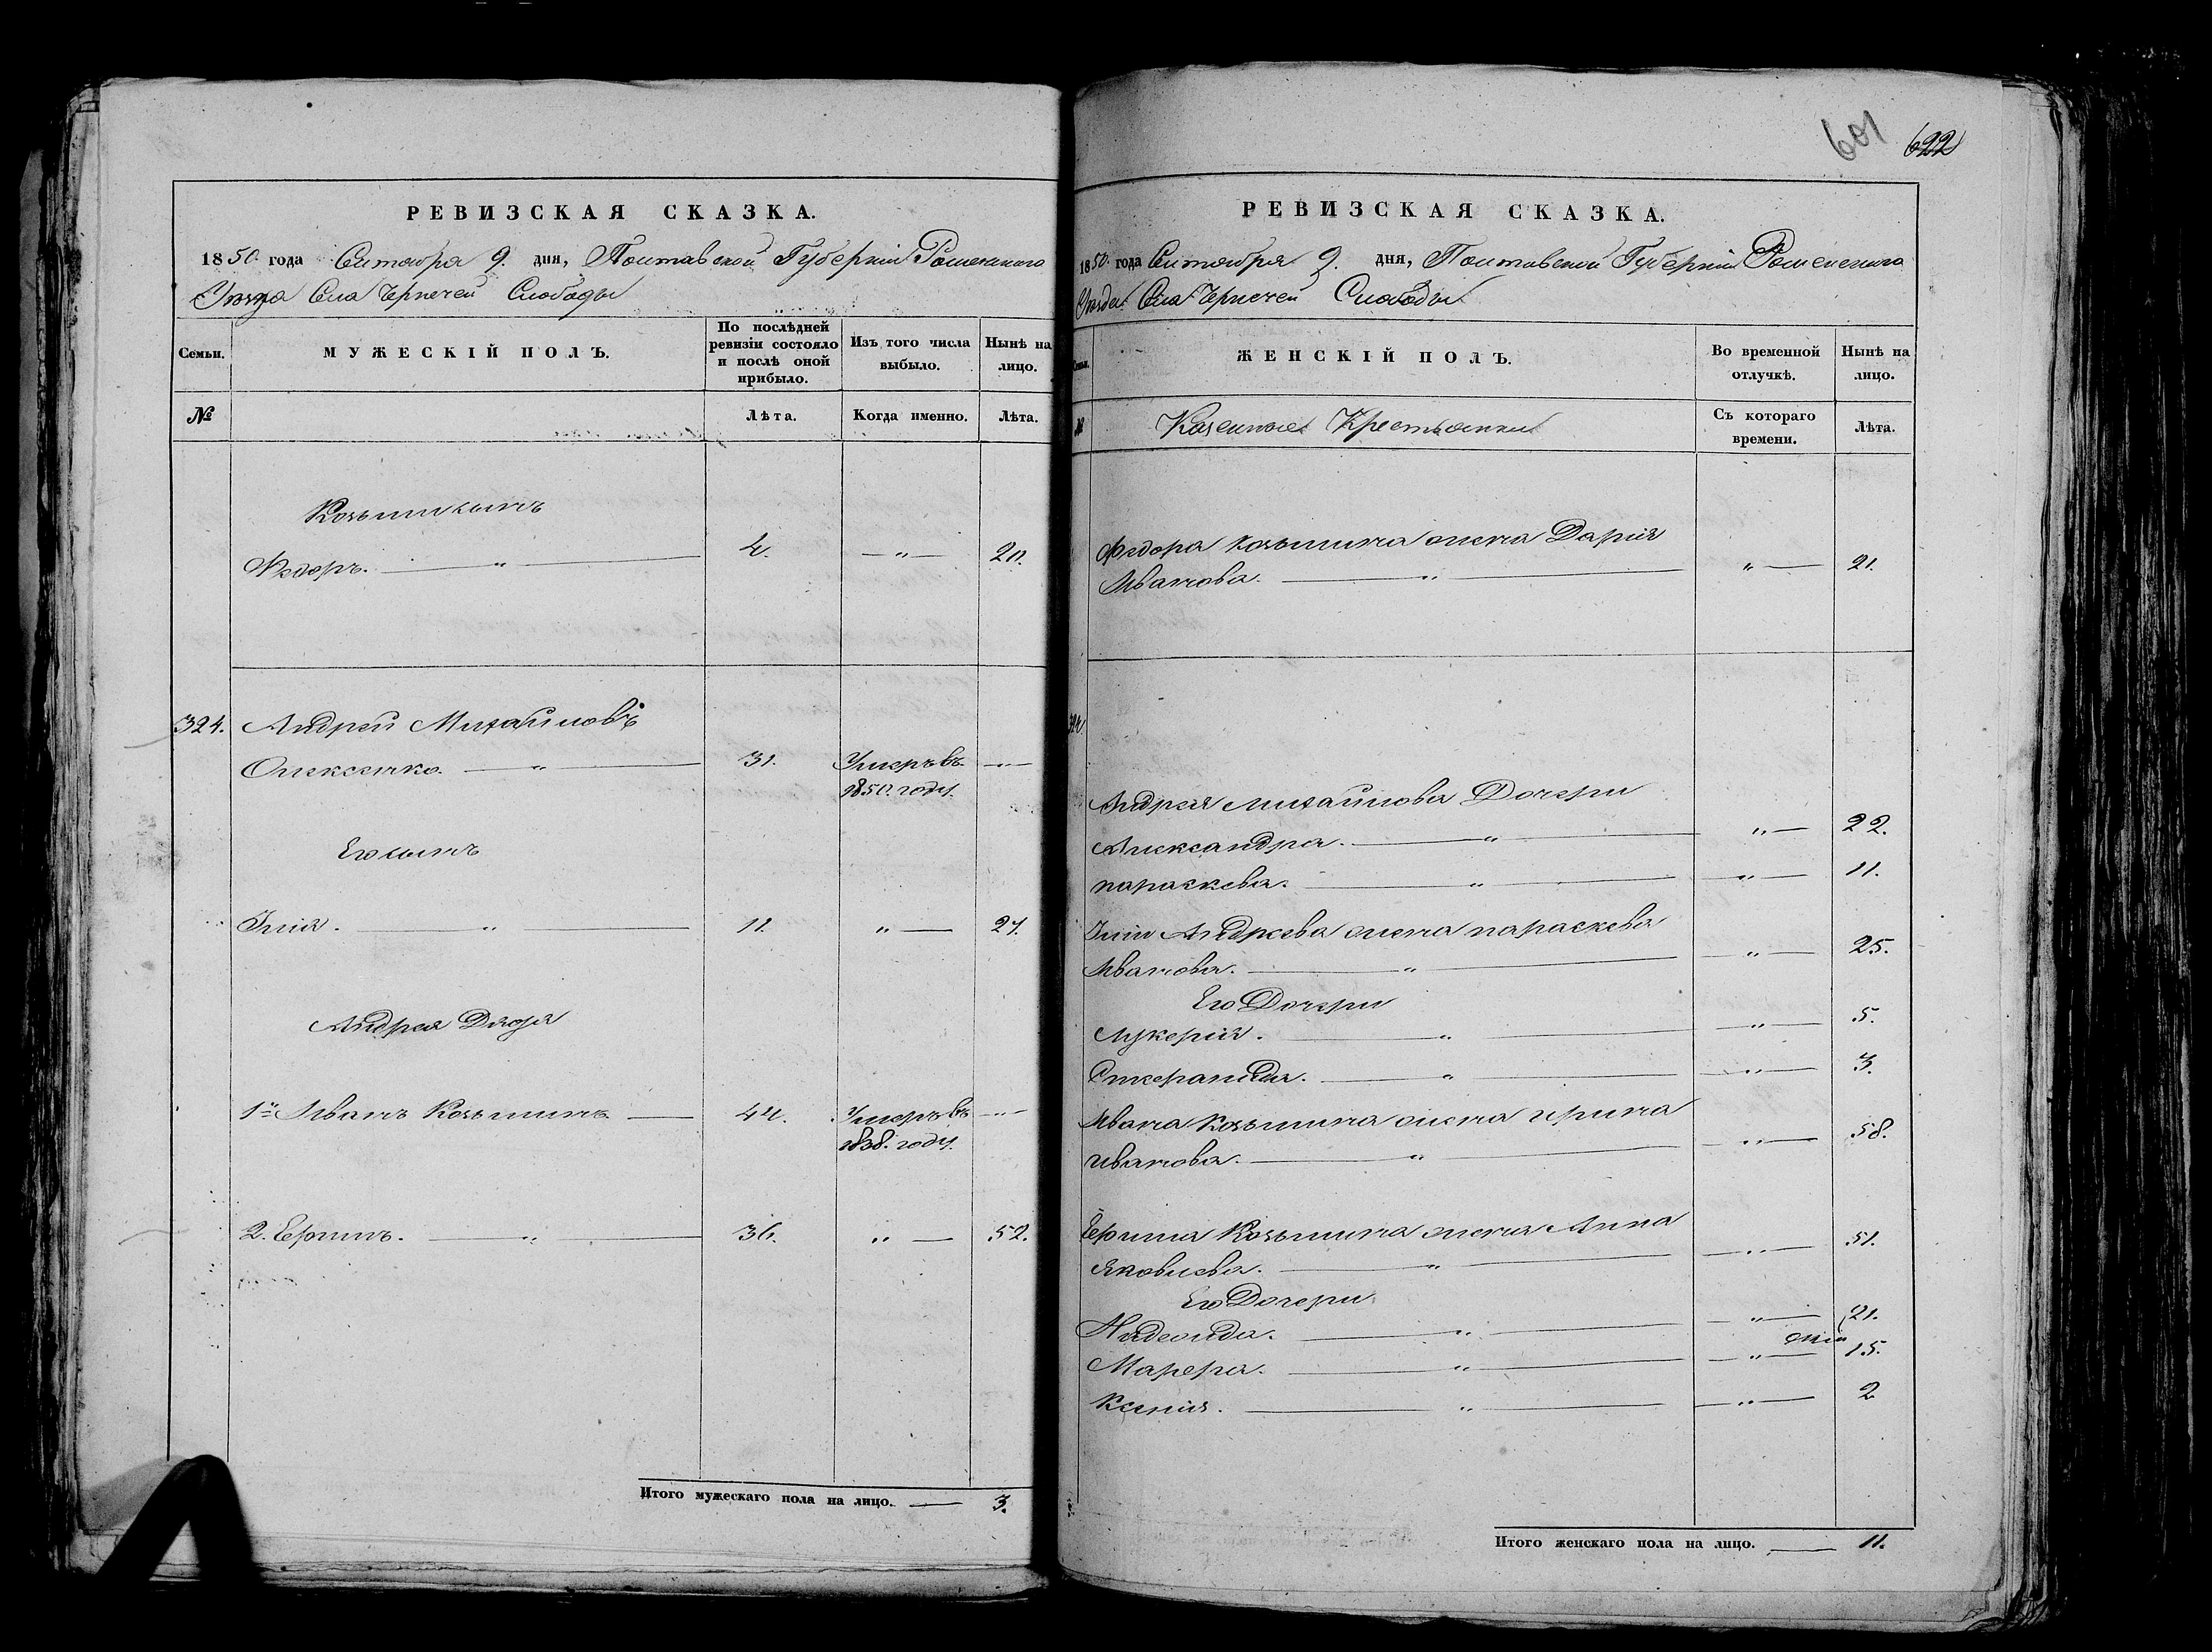 РЕВИЗСКАЯ СКАЗКА.
1850 года Сентября 9. дня, Полтавской Губерніи Роменского
Уезда Села Чернечей Слободы
Семьи. МУЖЕСКІЙ ПОЛЪ. По послѣдней ревизіи состояло и послѣ оной прибыло. Изъ того числа выбыло. Нынѣ на лицо.
№ Лѣта. Когда именно. Лѣта.
Козьми сынъ
Федоръ. — " — 4. — " — 20.
324. Андрей Михайловъ
Олексенко. — " — 31. Умеръ въ — " —
1850. году.
Его сынъ
Илія. — " — 11. " — 27.
Андрея Дядя
1й Иванъ Козьминъ — 44. Умеръ въ — " —
1838. году.
2. Ермилъ. — " — 36. " — 52.
Итого мужескаго пола на лицо. — 3.
601 622
РЕВИЗСКАЯ СКАЗКА.
1850. года Сентября 9. дня, Полтавской Губерніи Роменского
Уезда Села Чернечей Слободы
Семьи. ЖЕНСКІЙ ПОЛЪ. Во временной отлучкѣ. Нынѣ на лицо.
№ Казенные Крестьянки Съ котораго времени. Лѣта.
Федора Козьмина жена Дарія
Иванова. — " — " — 21.
324
Андрея Михайлова Дочери
Александра. — " — " — 22.
параскева. — " — " — 11.
Іліи Андреева жена параскева
Иванова. — " — " — 25.
Его Дочери
Лукерія. — " — " — 5.
— " — " — 3.
Ивана Козьмина жена ирина
иванова. — " — " — 58.
Ермила Козьмина жена Анна
Яковлева. — " — " — 51.
Его Дочери
Надежда. — " — " — 21.
— " — " — 15.
Ксенія. — " — " — 2
Итого женскаго пола на лицо. — 11.